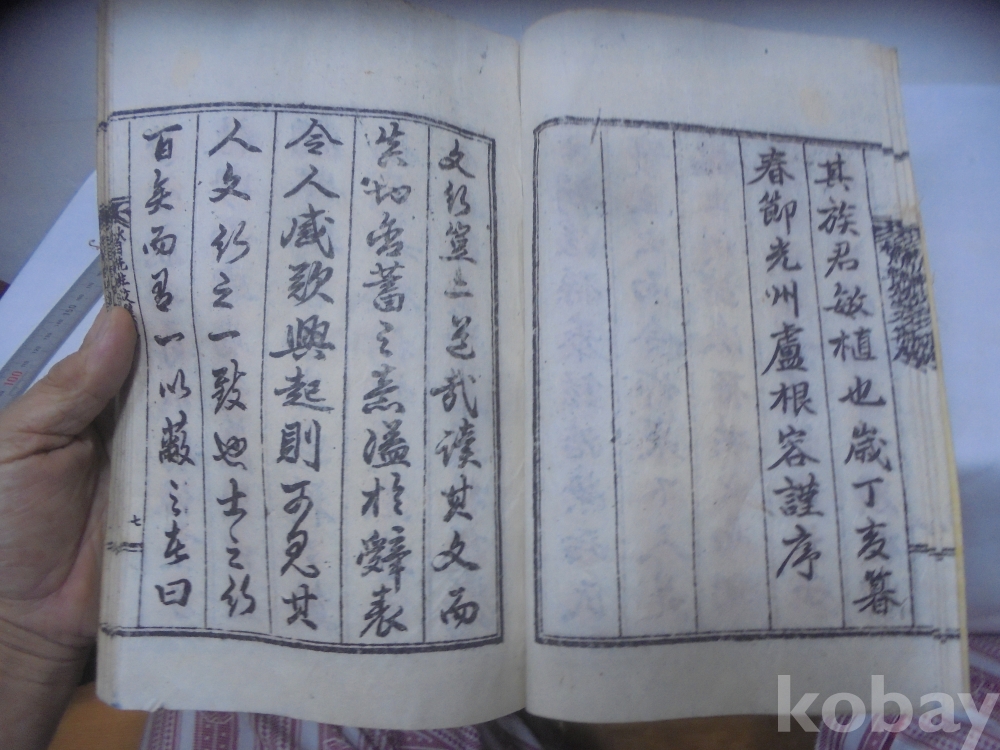 其族君敏植也歲丁亥暮
春節光州盧根容謹序
文行豈二道哉讀其文而
忠蓄之熹溢於辭表
令人感歎興起則可見其
人文行之一致也士之行
百矣而有一以蔽之者曰
七
kobay
100